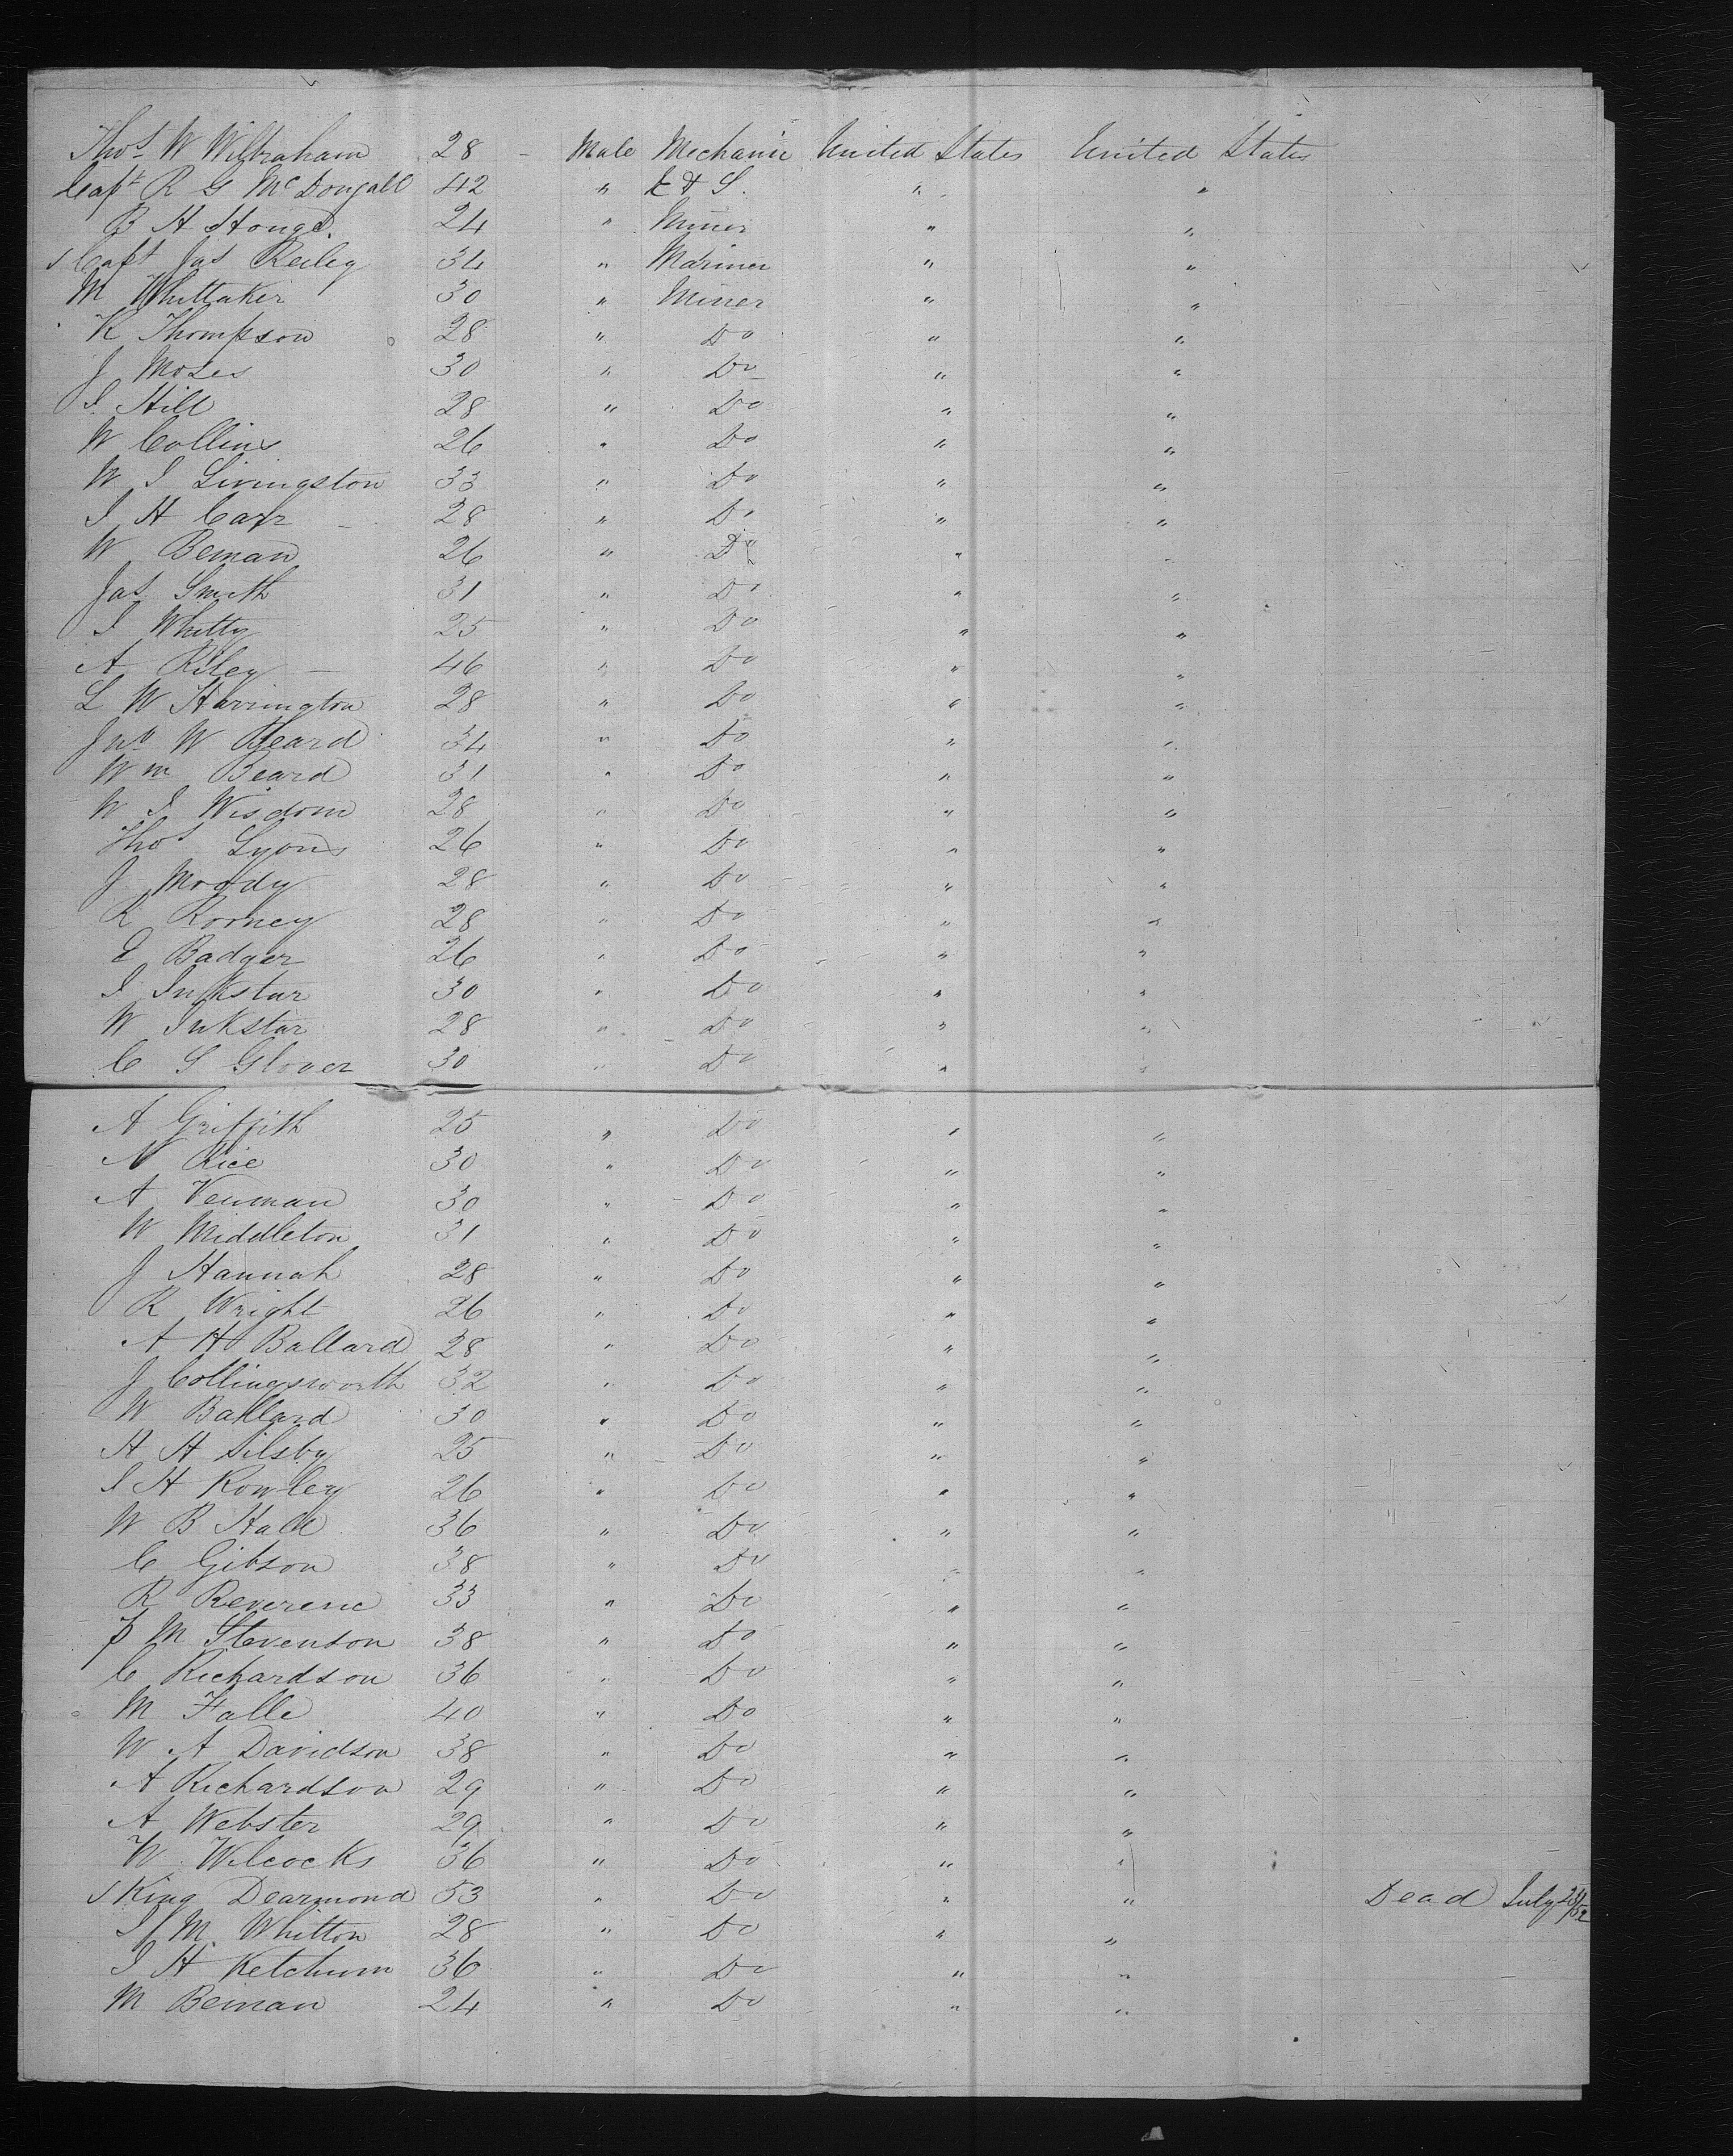 Thos W Wilbraham 28 - Male Mechanic United States United States
Capt R G McDougall 42 " " "
B H 24 " Miner " "
Capt Jas Reiley 34 " Mariner " "
M Whittaker 30 " Miner " "
K Thompson 28 " Do " "
J Moses 30 " Do " "
I Hill 28 " Do " "
W Collins 26 " Do " "
W I Livingston 33 " Do " "
I H Carr 28 " Do " "
W Beman 26 " Do " "
Jas Smith 31 " Do " "
I Whitty 25 " Do " "
A Riley 46 " Do " "
L W Harrington 28 " Do " "
Jno W Beard 34 " Do " "
Wm Beard 31 " Do " "
W I Wisdom 28 " Do " "
Thos Lyons 26 " Do " "
J Moody 28 " Do " "
R Rorney 28 " Do " "
E Badger 26 " Do " "
I Inkstar 30 " Do " "
W Inkstar 28 " Do " "
C S Glover 30 " Do " "
A Griffith 25 " Do " "
N Rice 30 " Do " "
A Venman 30 " Do " "
W Middleton 31 " Do " "
J Hannah 28 " Do " "
R Wright 26 " Do " "
A H Ballard 28 " Do " "
J Collingsworth 32 " Do " "
W Ballard 30 " Do " "
H H Silsby 25 " Do " "
I H Rowley 26 " Do " "
W B Hall 36 " Do " "
C Gibson 38 " Do " "
R Reverene 33 " Do " "
P M Stevenson 38 " Do " "
C Richardson 36 " Do " "
M Falle 40 " Do " "
W A Davidson 38 " Do " "
A Richardson 29 " Do " "
A Webster 29 " Do " "
W Wilcocks 36 " Do " "
King Dearmond 53 " Do " " Dead July
I M. Whitton 28 " Do " "
I H Ketchum 36 " Do " "
M Beman 24 " Do " "